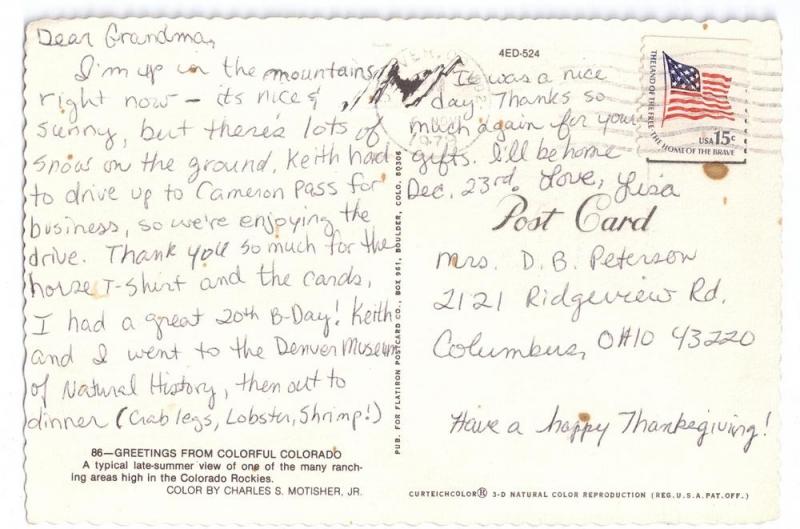 Dear Grandma,
I'm up in the mountains
right now – its nice &
sunny, but there's lots of
snow on the ground. Keith had
to drive up to Cameron Pass for
business, so we're enjoying the
drive. Thank you so much for the
horse T-shirt and the cards.
I had a great 20th B-Day! Keith
and I went to the Denver Museum
of Natural History, then out to
dinner (Crab legs, Lobster, Shrimp!)
It was a nice
day. Thanks so
much again for your
gifts. I'll be home
Dec. 23rd. Love, Lisa
86—GREETINGS FROM COLORFUL COLORADO
A typical late-summer view of one of the many ranch-
ing areas high in the Colorado Rockies.
COLOR BY CHARLES S. MOTISHER, JR.
PUB. FOR FLATIRON POSTCARD CO., BOX 961, BOULDER, COLO. 80306
4ED-524
THE LAND OF THE FREE · THE HOME OF THE BRAVE
USA 15c
Post Card
Mrs. D. B. Peterson
2121 Ridgeview Rd.
Columbus, OHIO 43220
Have a happy Thanksgiving!
CURTEICHCOLOR® 3-D NATURAL COLOR REPRODUCTION (REG. U.S.A. PAT. OFF.)